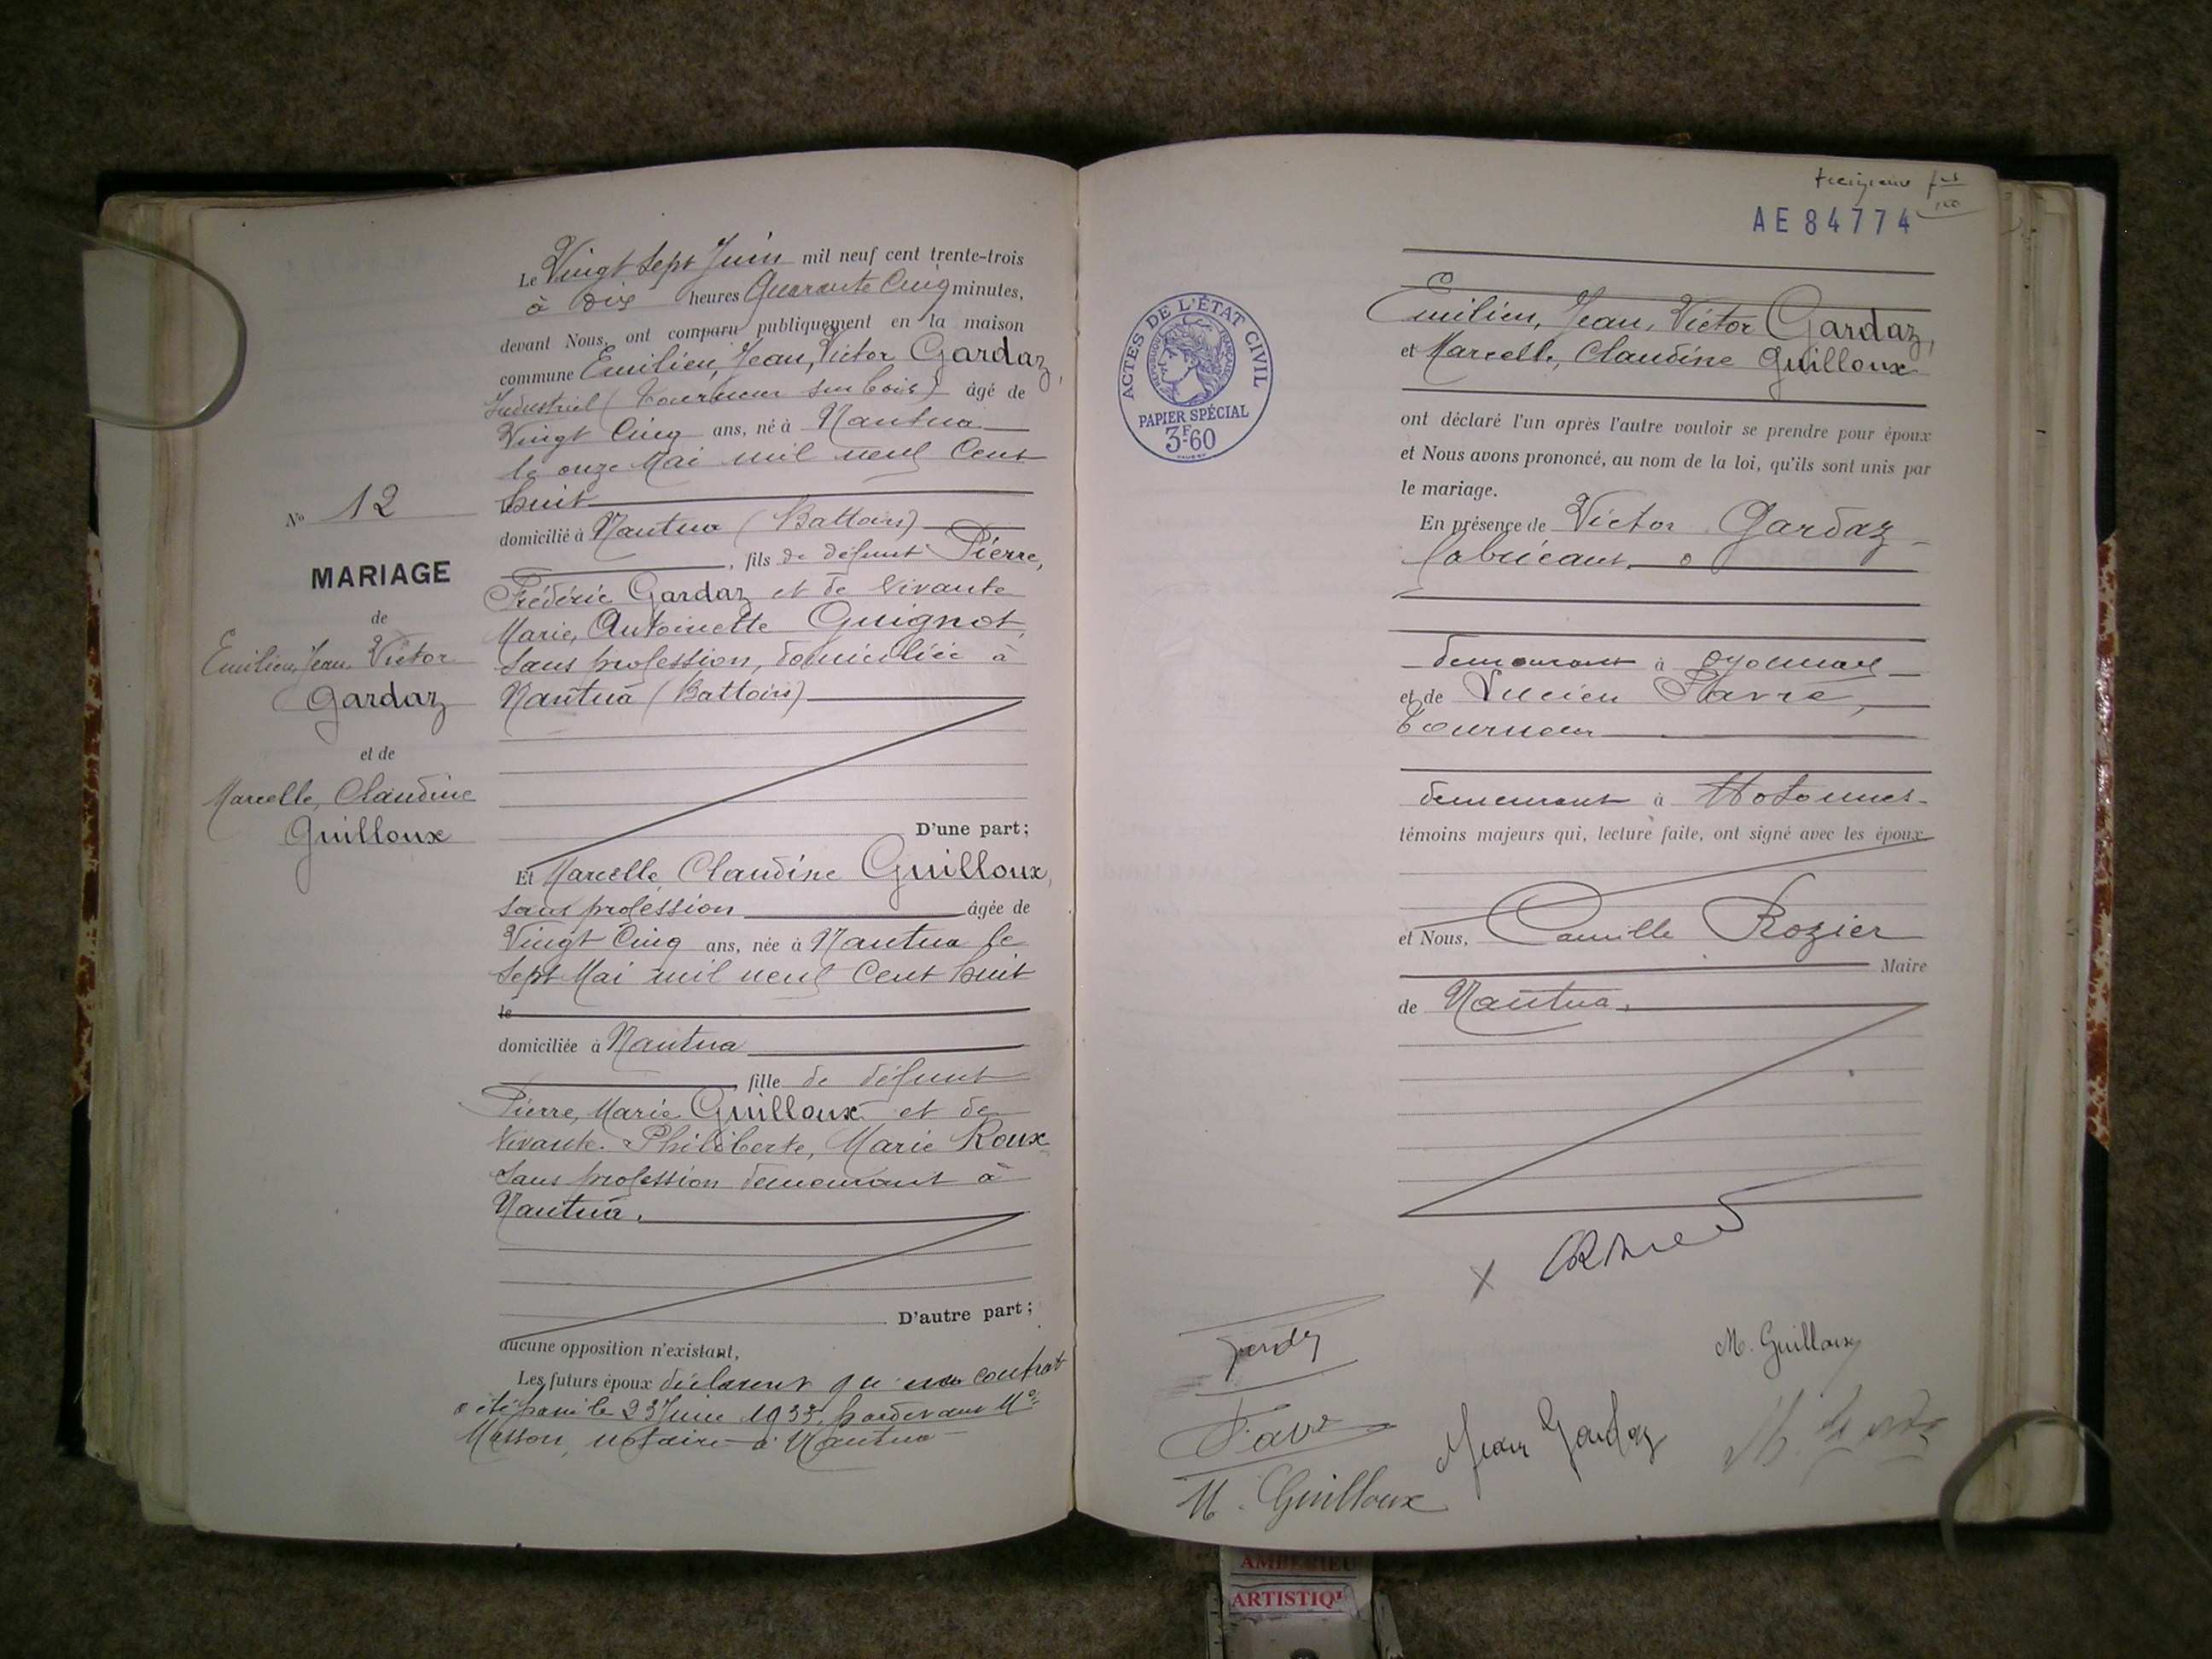 N° 12
MARIAGE
de
Emilien, Jean, Victor
Gardaz
et de
Marcelle, Claudine
Guilloux
Le Vingt Sept Juin mil neuf cent trente-trois
à dix heures Quarante Cinq minutes,
devant Nous, ont comparu publiquement en la maison
commune Emilien, Jean, Victor Gardaz,
Industriel (Tourneur sur bois) âgé de
Vingt Cinq ans, né à Nantua
le onze Mai mil neuf Cent
huit
domicilié à Nantua (Battoirs)
, fils de défunt Pierre,
Frédéric Gardaz et de vivante
Marie, Antoinette Guignot,
Sans profession, domiciliée à
Nantua (Battoirs)
D'une part;
Et Marcelle, Claudine Guilloux,
sans profession âgée de
Vingt Cinq ans, née à Nantua le
Sept Mai mil neuf Cent huit
le
domiciliée à Nantua
fille de défunt
Pierre, Marie Guilloux et de
vivante Philiberte, Marie Roux
Sans profession demeurant à
Nantua.
D'autre part;
aucune opposition n'existant,
Les futurs époux déclarent qu'un contrat
a été passé le 23 Juin 1933, par devant Me
Masson, notaire à Nantua
AE 84774
ACTES DE L'ÉTAT CIVIL
RÉPUBLIQUE FRANÇAISE
PAPIER SPÉCIAL
3F.60
Emilien, Jean, Victor Gardaz,
et Marcelle, Claudine Guilloux
ont déclaré l'un après l'autre vouloir se prendre pour époux
et Nous avons prononcé, au nom de la loi, qu'ils sont unis par
le mariage.
En présence de Victor Gardaz
fabricant
demeurant à Oyonnax
et de Lucien Favre,
Tourneur
demeurant à Hotonnes
témoins majeurs qui, lecture faite, ont signé avec les époux
et Nous, Camille Rozier
Maire
de Nantua.
M. Guilloux
Favre
Jean Gardaz
M. Guilloux
ARTISTIQ